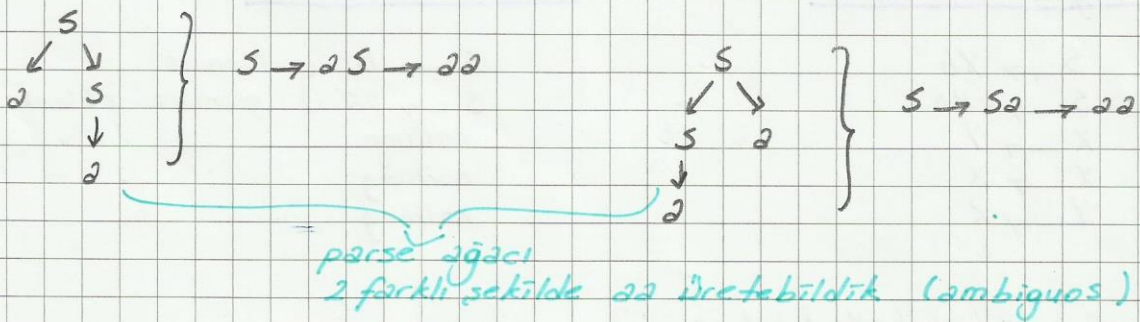 S
a S
a
S → aS → aa
S
S a
a
S → Sa → aa
parse ağacı
2 farklı şekilde aa üretebildik (ambiguos)